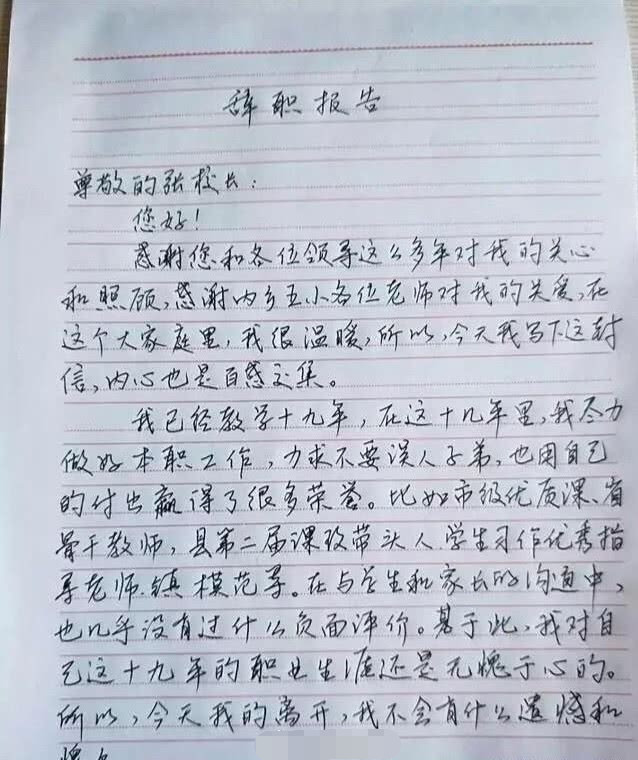 辞职报告
尊敬的张校长：
您好！
感谢您和各位领导这么多年对我的关心
和照顾，感谢内乡五小各位老师对我的关爱，在
这个大家庭里，我很温暖，所以，今天我写下这封
信，内心也是百感交集。
我已经教学十九年，在这十几年里，我尽力
做好本职工作，力求不要误人子弟，也用自己
的付出赢得了很多荣誉。比如市级优质课、省
骨干教师，县第二届课改带头人.学生习作优秀指
导老师.镇模范等。在与学生和家长的沟通中，
也几乎没有过什么负面评价。基于此，我对自
己这十九年的职业生涯还是无愧于心的。
所以，今天我的离开，我不会有什么遗憾和